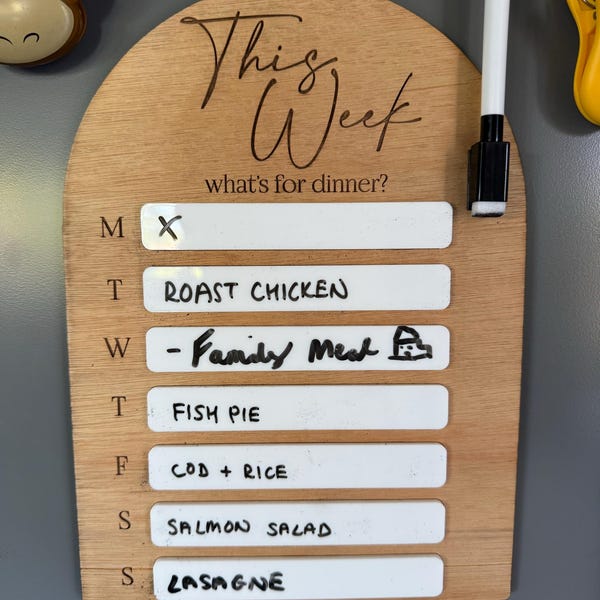 This
Week
what's for dinner?
M X
T ROAST CHICKEN
W - Family Meal
T FISH PIE
F COD + RICE
S SALMON SALAD
S LASAGNE